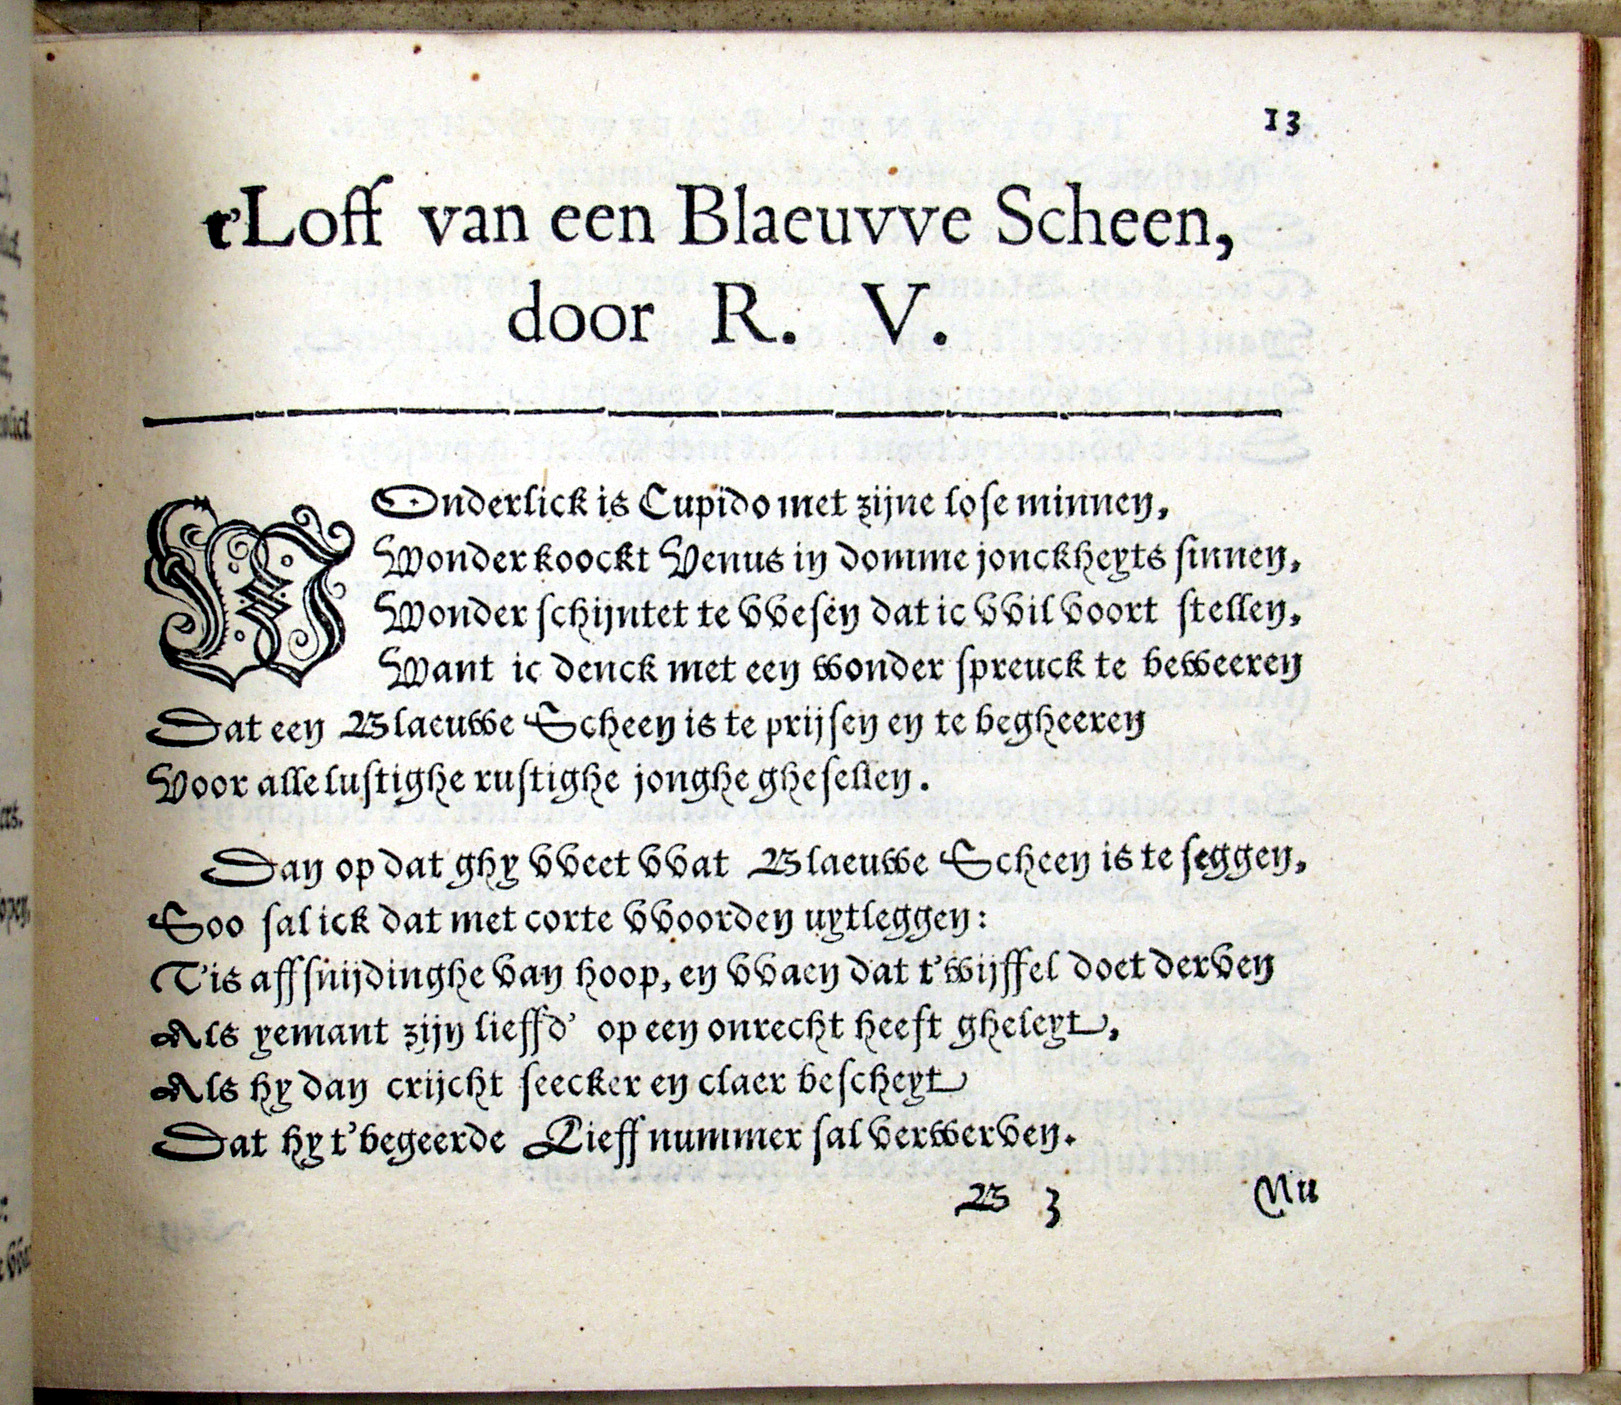 13
t'Loff van een Blaeuvve Scheen,
door R. V.
WOnderlick is Cupido met zijne lose minnen,
Wonder koockt Venus in domme jonckheyts sinnen,
Wonder schijntet te vvesen dat ic vvil voort stellen,
Want ic denck met een wonder spreuck te beweeren
Dat een Blaeuwe Scheen is te prijsen en te begheeren
Voor alle lustighe rustighe jonghe ghesellen.
Dan op dat ghy vveet vvat Blaeuwe Scheen is te seggen,
Soo sal ick dat met corte vvoorden uytleggen:
T'is affsnijdinghe van hoop, en vvaen dat t'wijffel doet derven
Als yemant zijn lieffd' op een onrecht heeft gheleyt,
Als hy dan crijcht seecker en claer bescheyt
Dat hy t'begeerde Lieff nummer sal verwerven.
B 3 Nu